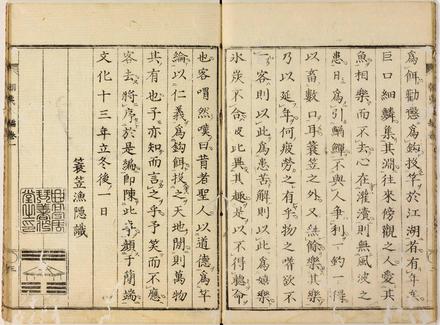 為餌勸懲為鈎投竿於江湖若有年矣
巨口細鱗集其淵往來傍觀之人愛其
魚相樂而不去心在灌瀆則無風波之
患日為引鯢鮒不與人爭利一釣一得
以畜數口耳簑笠之外又無餘樂其樂
乃以延年何疲勞之有乎物之嗜欲不
一客則以此為患苦解則以此為娛樂
氷炭不合皮比異其趣是以不得聽命
也客喟然嘆曰昔者聖人以道德為竿
綸以仁義為鈎餌投之天地間則萬物
共有也乎亦知而言之乎予笑而不應
客去將序於是編即陳此乎顏子簡端
文化十三年立冬後一日
簑笠漁隱識